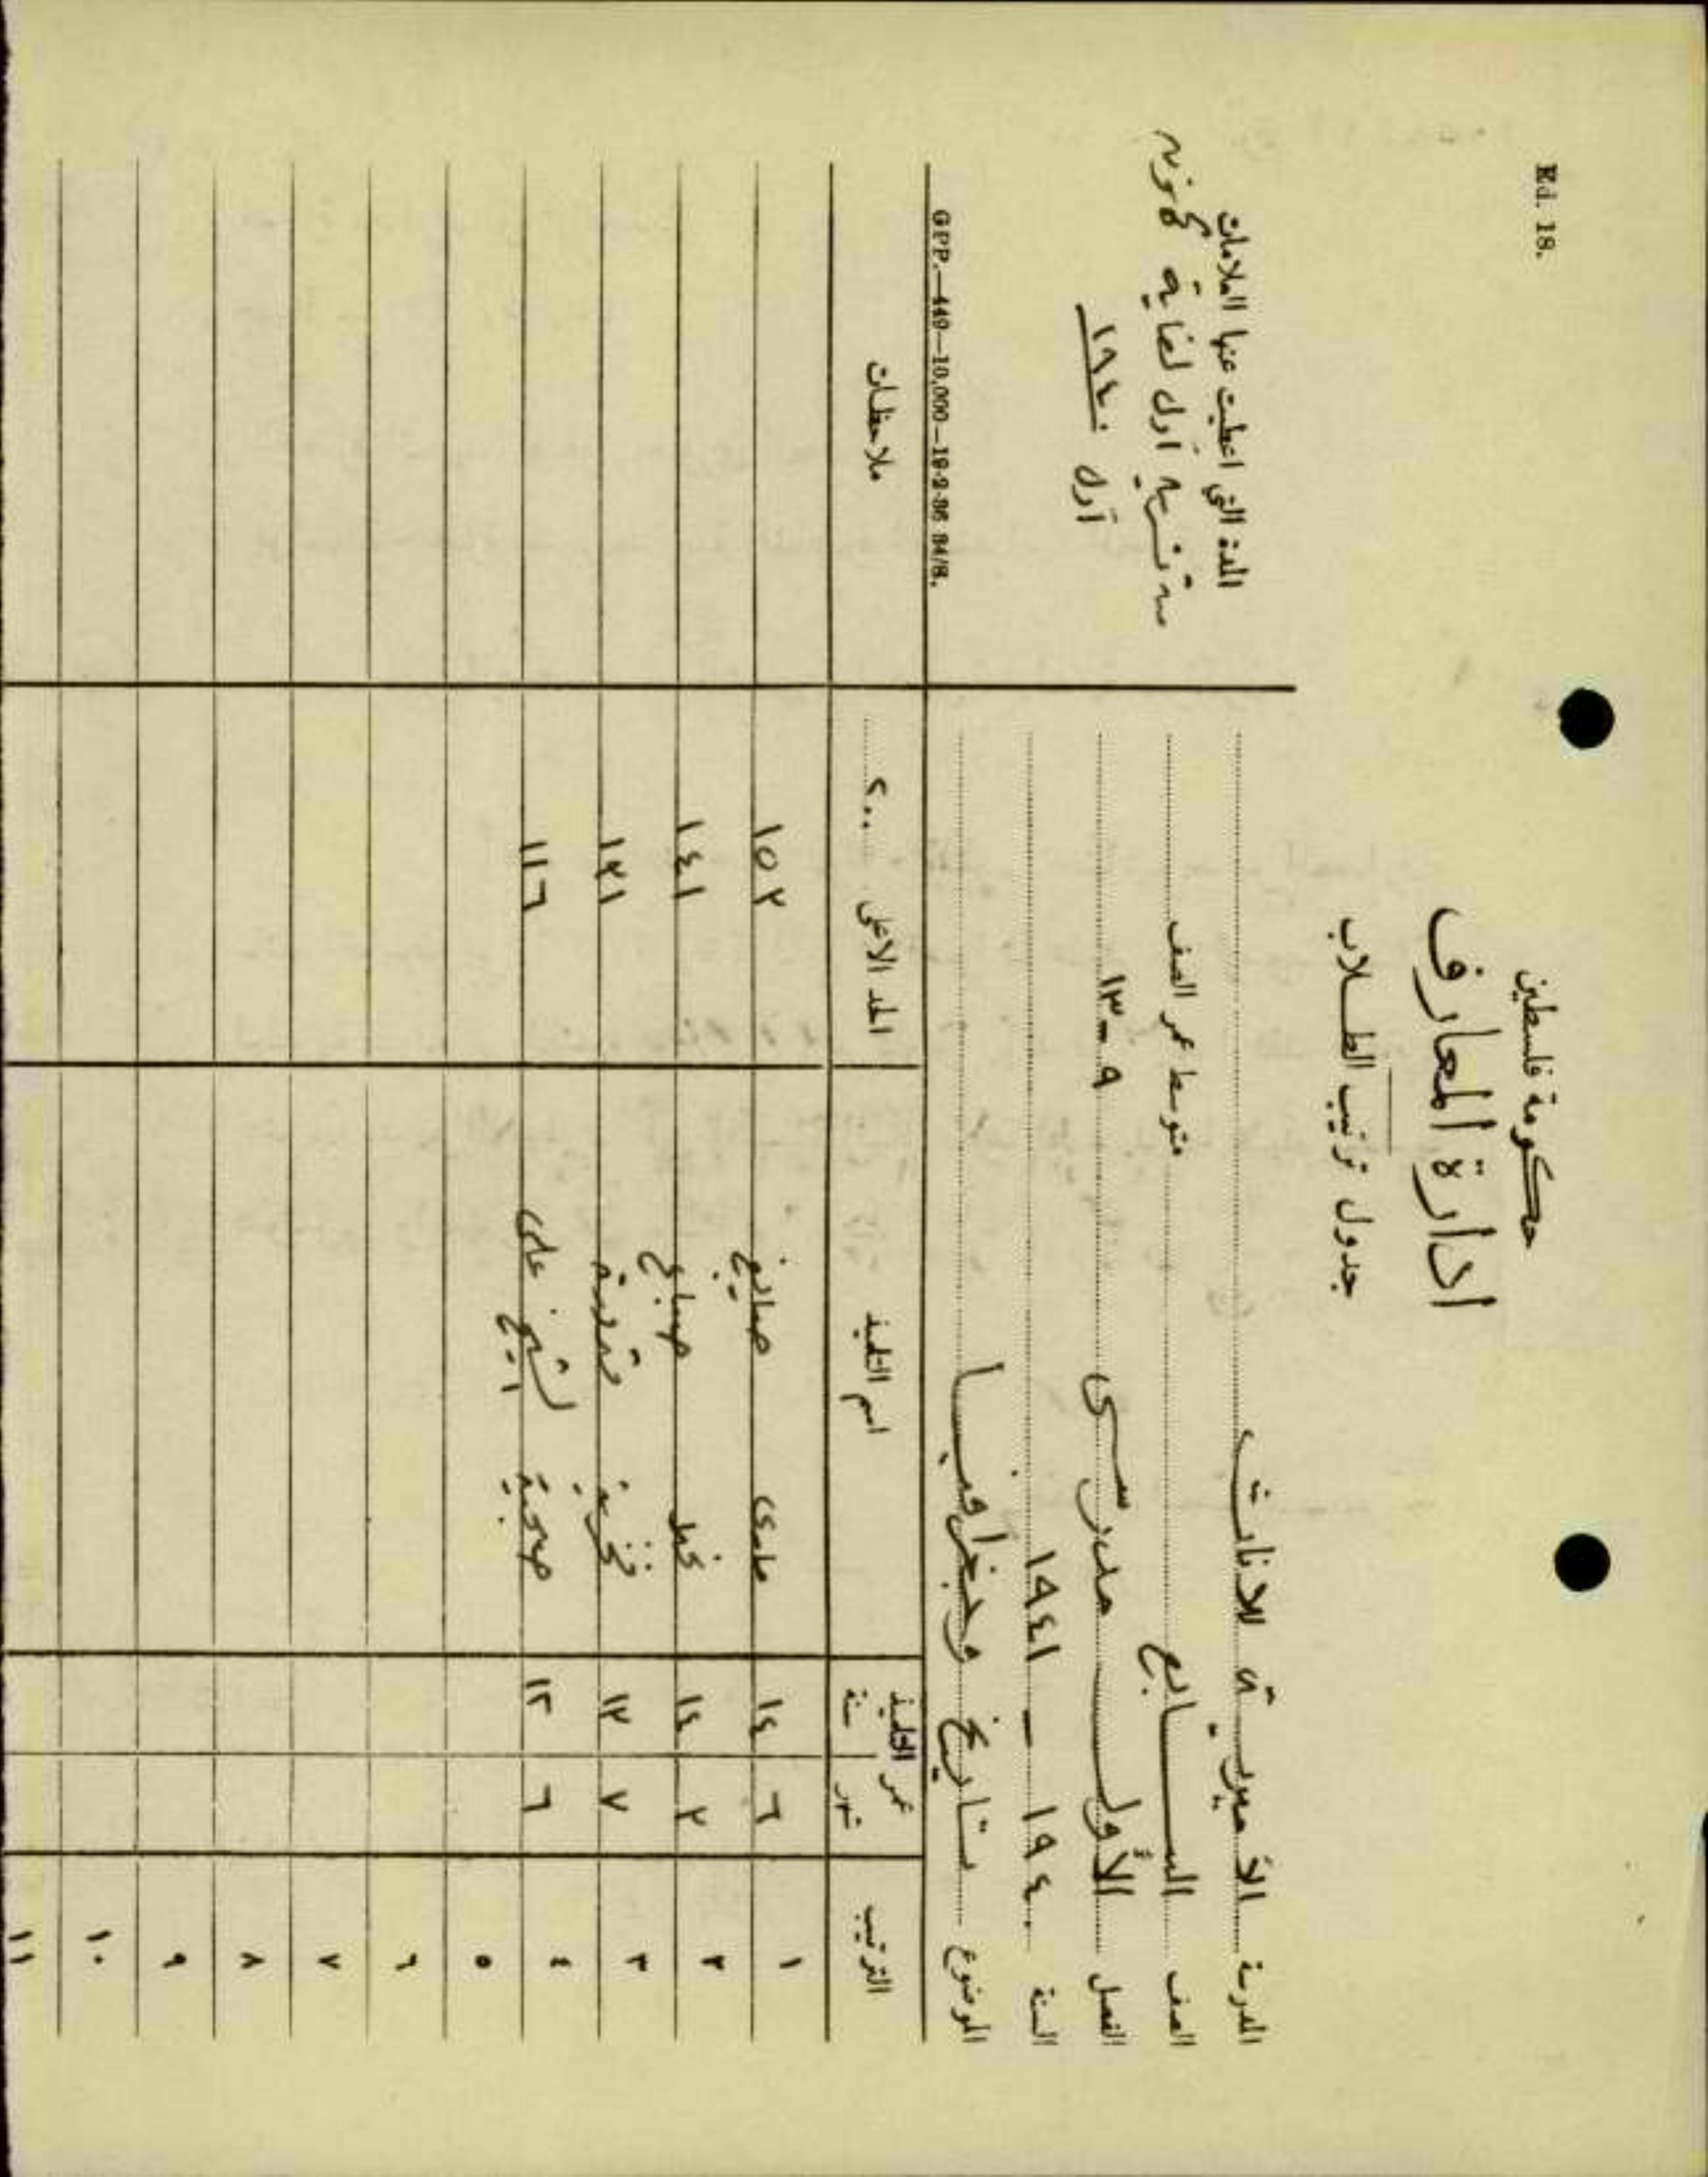 Ed. 18.
حكومة فلسطين
ادارة المعارف
جدول ترتيب الطلاب
المدرسة الأميرية للاناث
الصف السابع متوسط عمر الصف
الفصل الأول مدرسى ٩ - ١٣
السنة ١٩٤٠ - ١٩٤١
الموضوع تاريخ وجغرافيا
المدة التي اعطيت عنها العلامات
أول لغاية
أول ١٩٤٠
GPP.—449—10,000—19-2-36 84/8.
الترتيب عمر التلميذ اسم التلميذ الحد الاعلى ٢٠٠ ملاحظات
شهر سنة
١ ٦ ١٤ صايغ ١٥٢
٢ ٢ ١٤ صباغ ١٤١
٣ ٧ ١٣ فخرية ١٣١
٤ ٦ ١٢ صبحية الشيخ على ١١٦
٥
٦
٧
٨
٩
١٠
١١